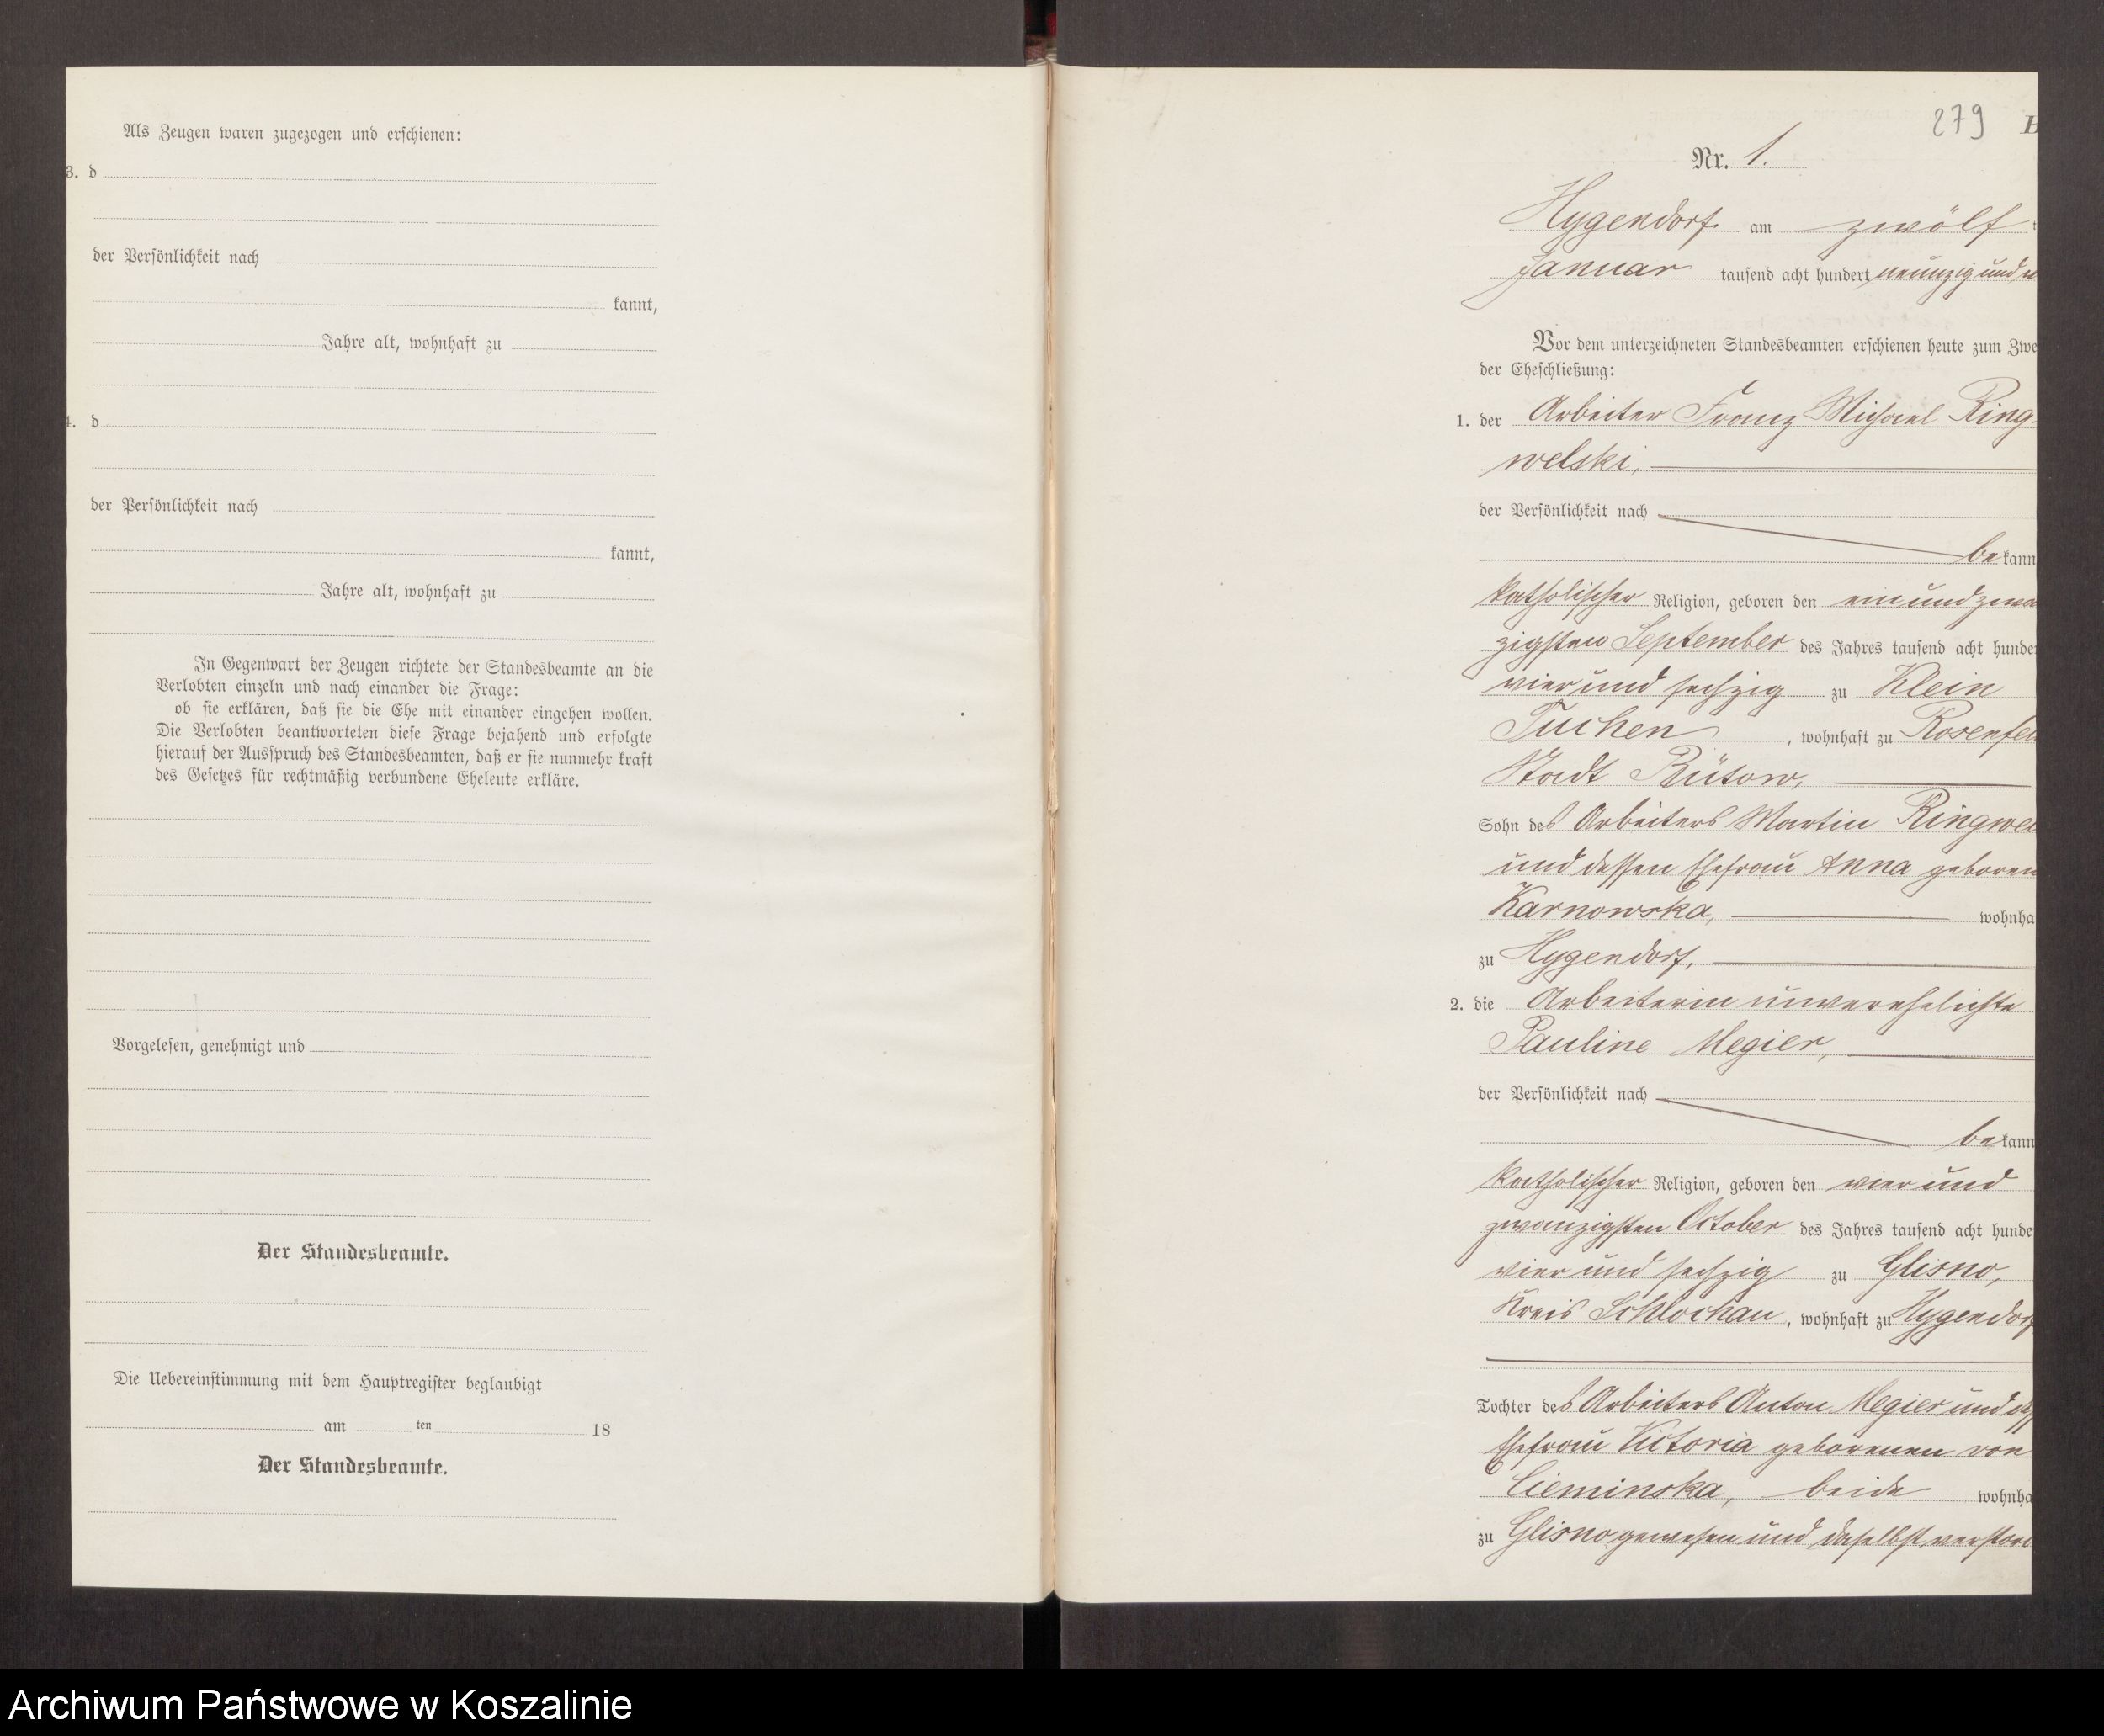 Als Zeugen waren zugezogen und erschienen:
3. d
der Persönlichkeit nach
kannt,
Jahre alt, wohnhaft zu
4. d
der Persönlichkeit nach
kannt,
Jahre alt, wohnhaft zu
In Gegenwart der Zeugen richtete der Standesbeamte an die
Verlobten einzeln und nach einander die Frage:
ob sie erklären, daß sie die Ehe mit einander eingehen wollen.
Die Verlobten beantworteten diese Frage bejahend und erfolgte
hierauf der Ausspruch des Standesbeamten, daß er sie nunmehr kraft
des Gesetzes für rechtmäßig verbundene Eheleute erkläre.
Vorgelesen, genehmigt und
Der Standesbeamte.
Die Uebereinstimmung mit dem Hauptregister beglaubigt
am ten 18
Der Standesbeamte.
279
Nr. 1.
Hygendorf am zwölf
Januar tausend acht hundert neunzig und
Vor dem unterzeichneten Standesbeamten erschienen heute zum Zwe
der Eheschließung:
1. der Arbeiter Franz Michael Ring-
welski,
der Persönlichkeit nach
be kann
katholischer Religion, geboren den ein und zwan
zigsten September des Jahres tausend acht hunde
vier und sechzig zu Klein
Tuchen, wohnhaft zu Rosenfel
Stadt Bütow,
Sohn des Arbeiters Martin Ringwel
und dessen Ehefrau Anna geboren
Karnowska, wohnha
zu Hygendorf,
2. die Arbeiterin unverehelichte
Pauline Megier,
der Persönlichkeit nach
be kann
katholischer Religion, geboren den vier und
zwanzigsten October des Jahres tausend acht hunde
vier und sechzig zu Glisno,
Kreis Schlochau, wohnhaft zu Hygendorf
Tochter des Arbeiters Anton Megier und dess
Ehefrau Victoria geborenen von
Cieminska, beide wohnha
zu Glisno gewesen und daselbst verstor
Archiwum Państwowe w Koszalinie